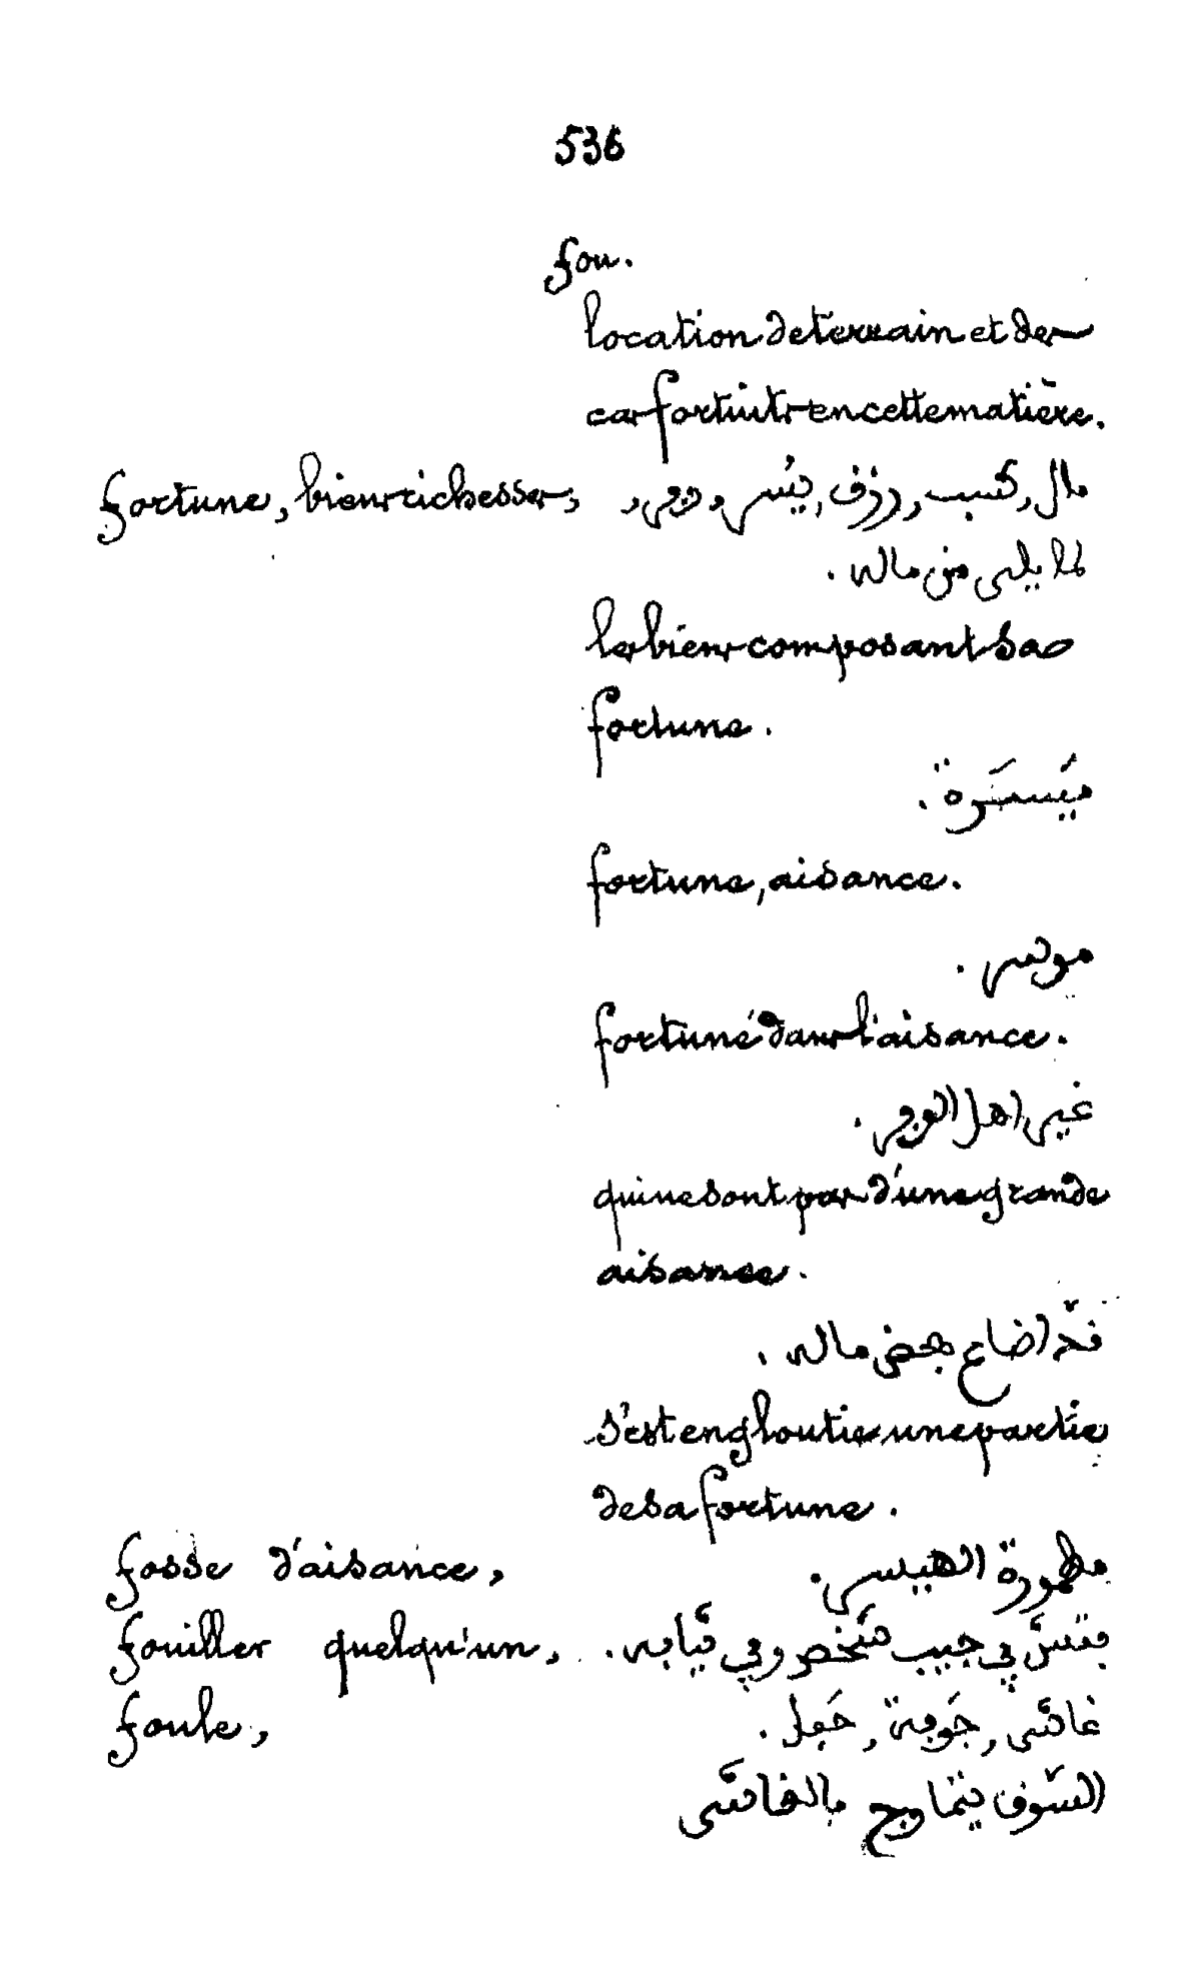 536
fou.
location de terrain et des
cas fortuits en cette matière.
fortune, biens richesses, مال, كسب, رزق, يُسر, وفر,
لما يلي من ماله.
les biens composant sa
fortune.
مَيْسَرَة.
fortune, aisance.
موسر.
fortuné dans l'aisance.
غير اهل الوفر.
qui ne sont pas d'une grande
aisance.
قد اضاع بعض ماله.
s'est engloutie une partie
de sa fortune.
fosse d'aisance, مطمورة الهيسي.
fouiller quelqu'un, فتّش في جيب شخص وفي ثيابه.
foule, غاشي, جَوقة, حَفل.
السّوق يتماوج بالغاشي